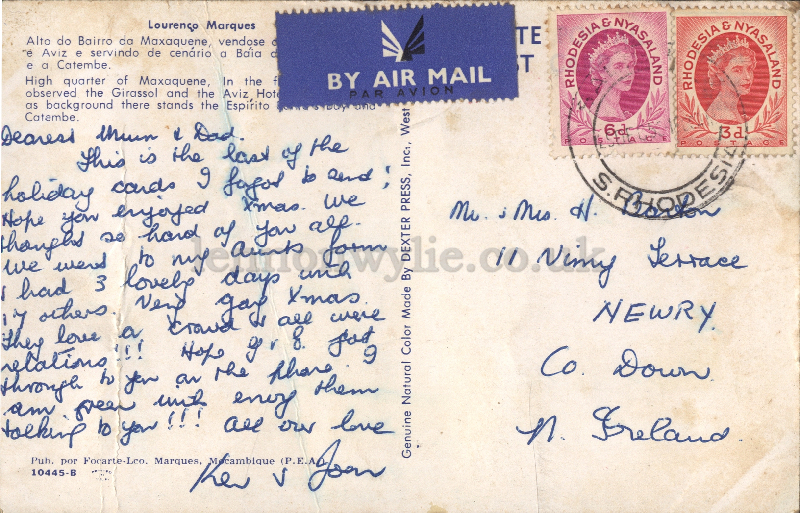 Lourenço Marques
Alto do Bairro da Maxaquene, vendose
e Aviz e servindo de cenário a Baía
e a Catembe.
High quarter of Maxaquene, In the
observed the Girassol and the Aviz
as background there stands the Espírito Bay and
Catembe.
BY AIR MAIL
PAR AVION
RHODESIA & NYASALAND
6d
POSTAGE
RHODESIA & NYASALAND
3d
POSTAGE
S. RHODESIA
Dearest Mum & Dad.
This is the last of the
holiday cards I forgot to send;
Hope you enjoyed Xmas. We
thought so hard of you all.
We went to my aunts farm
& had 3 lovely days with
17 others. Very gay Xmas.
They love a crowd & all were
relations!!! Hope & got
through to you on the phone. I
am green with envy them
talking to you!!! All our love
Ken & Joan
Pub. por Focarte-Lco. Marques, Mocambique (P.E.A.)
10445-B
Genuine Natural Color Made By DEXTER PRESS, Inc., West
Mr. & Mrs. H.
11 Vimy Terrace
NEWRY.
Co. Down.
N. Ireland.
lennonwylie.co.uk